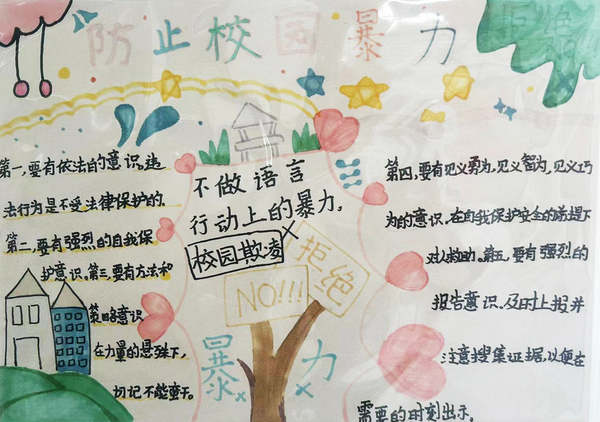 防止校园暴力
拒绝
第一，要有依法的意识。违
法行为是不受法律保护的，
第二，要有强烈的自我保
护意识。第三，要有方法和
策略意识
在力量的悬殊下，
切记不能蛮干。
不做语言
行动上的暴力。
校园欺凌
拒绝
NO!!!
暴力
第四，要有见义勇为，见义智为，见义巧
为的意识，在自我保护安全的前提下
对人救助。第五，要有强烈的
报告意识，及时上报并
注意搜集证据，以便在
需要的时刻出示。